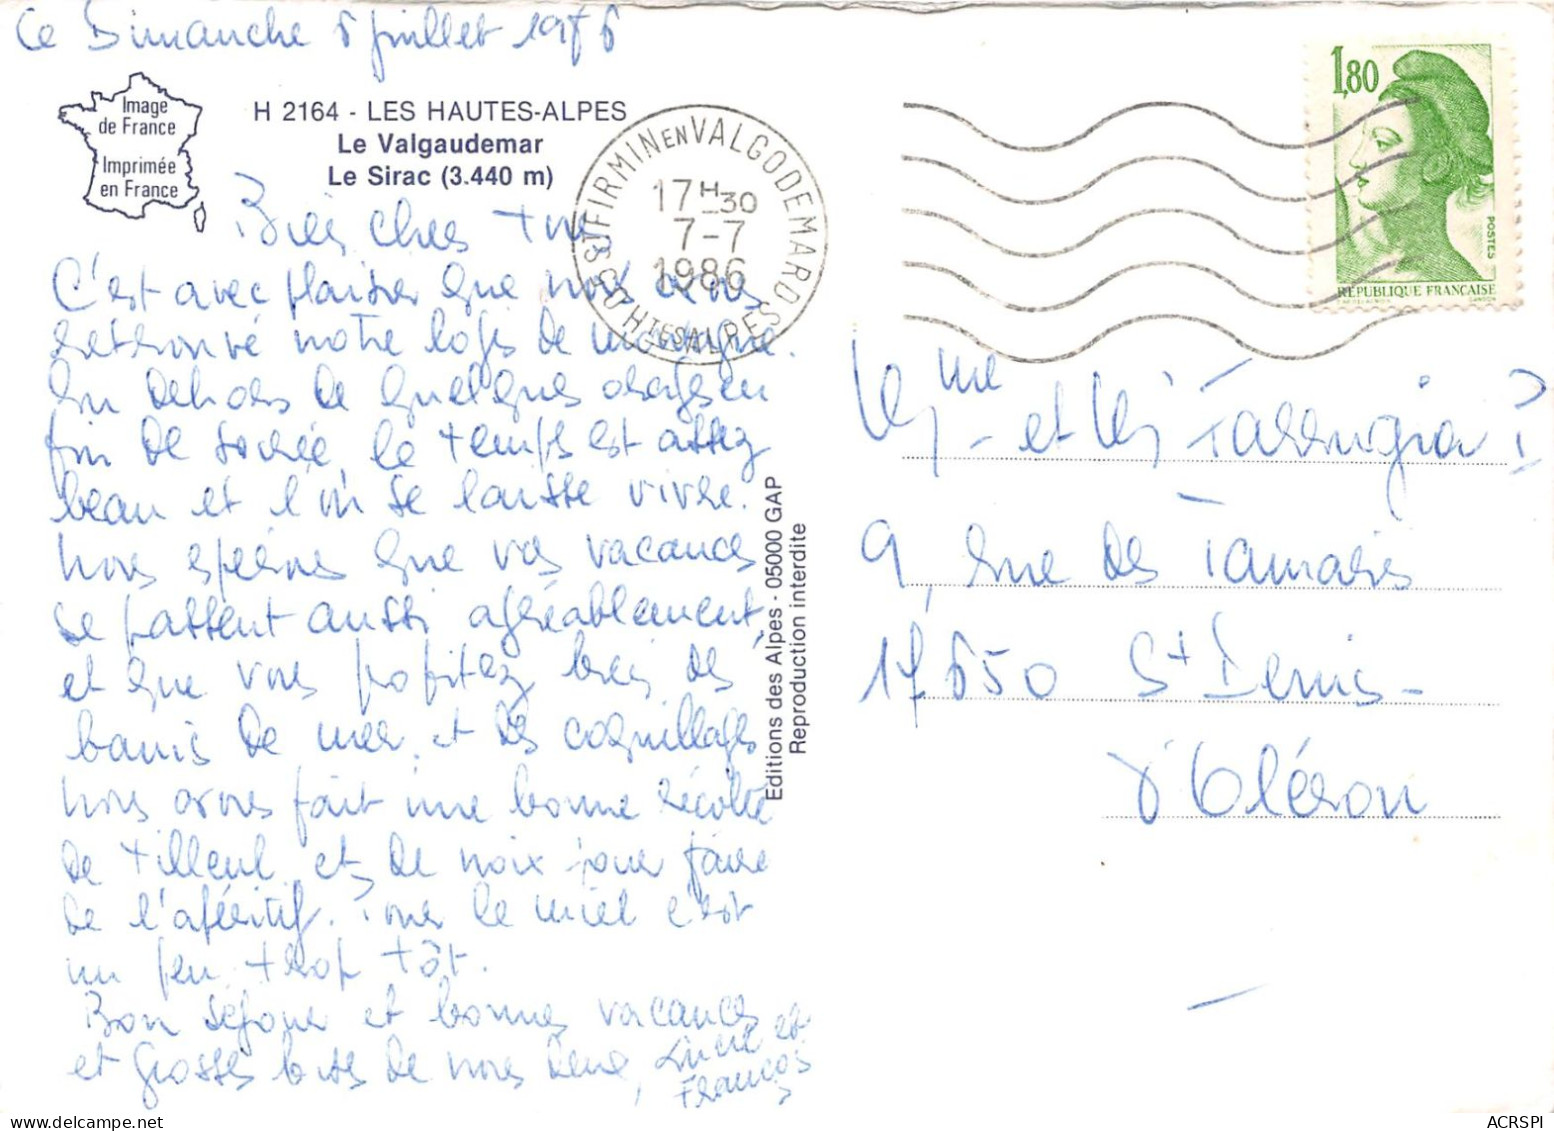 Ce Dimanche 6 juillet 1986
Image
de France
Imprimée
en France
H 2164 - LES HAUTES-ALPES
Le Valgaudemar
Le Sirac (3.440 m)
ST FIRMIN EN VALGODEMARD
17H30
7-7
1986
HTES ALPES
1,80
POSTES
RÉPUBLIQUE FRANÇAISE
Bien chers tous
C'est avec plaisir que nous avons
retrouvé notre logis de montagne.
En dehors de quelques orages en
fin de soirée, le temps est assez
beau et l'on se laisse vivre.
Nous espérons que vos vacances
se passent aussi agréablement,
et que vous profitez bien des
bains de mer et des coquillages
Nous avons fait une bonne récolte
de tilleul et de noix pour faire
de l'apéritif. Pour le miel c'est
un peu trop tôt.
Bon séjour et bonnes vacances
et grosses bises de nous deux, Lucie et
François
Editions des Alpes - 05000 GAP
Reproduction interdite
Mme et
9, rue des Tamaris
17650 St Denis-
d'Oléron
ACRSPI